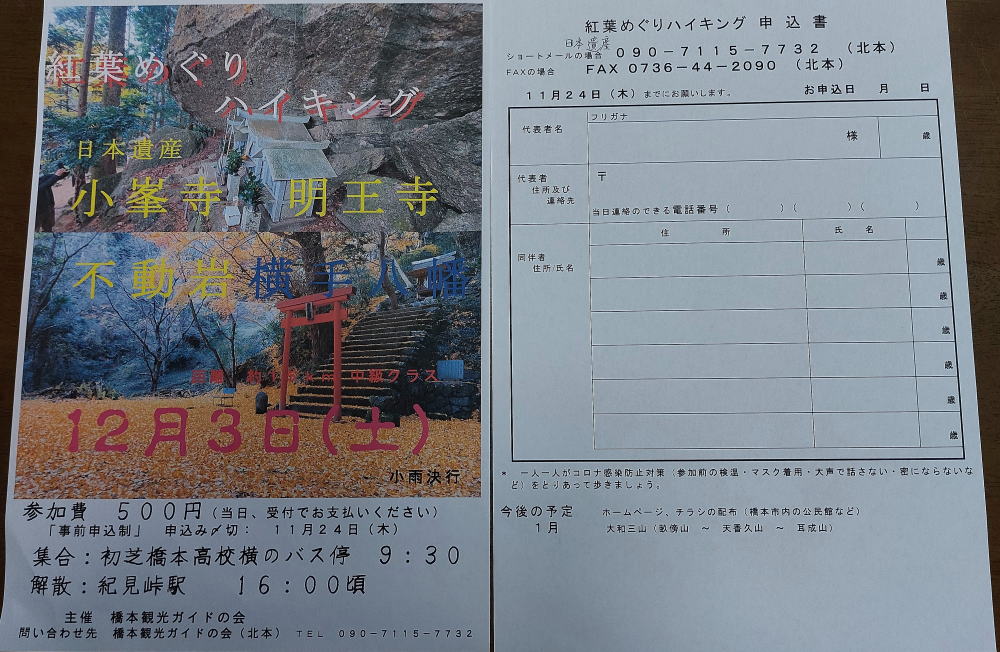 紅葉めぐり
ハイキング
日本遺産
小峯寺 明王寺
不動岩 横手八幡
中級クラス
12月3日(土)
小雨決行
参加費 500円(当日、受付でお支払いください)
「事前申込制」 申込み〆切: 11月24日(木)
集合:初芝橋本高校横のバス停 9:30
解散:紀見峠駅 16:00頃
主催 橋本観光ガイドの会
問い合わせ先 橋本観光ガイドの会(北本) TEL 090-7115-7732
紅葉めぐりハイキング 申込書
日本遺産
ショートメールの場合 090-7115-7732 (北本)
FAXの場合 FAX 0736-44-2090 (北本)
11月24日(木)までにお願いします。 お申込日 月 日
フリガナ
代表者名 様 歳
代表者 〒
住所及び
連絡先
当日連絡のできる電話番号( )( )( )
住 所 氏 名
同伴者
住所/氏名
歳
歳
歳
歳
歳
歳
* 一人一人がコロナ感染防止対策(参加前の検温・マスク着用・大声で話さない・密にならないな
ど)をとりあって歩きましょう。
今後の予定 ホームページ、チラシの配布(橋本市内の公民館など)
1月 大和三山(畝傍山 ~ 天香久山 ~ 耳成山)